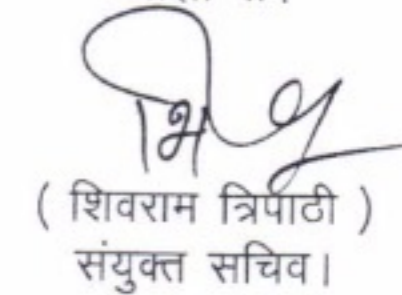 ( शिवराम त्रिपाठी )
संयुक्त सचिव।